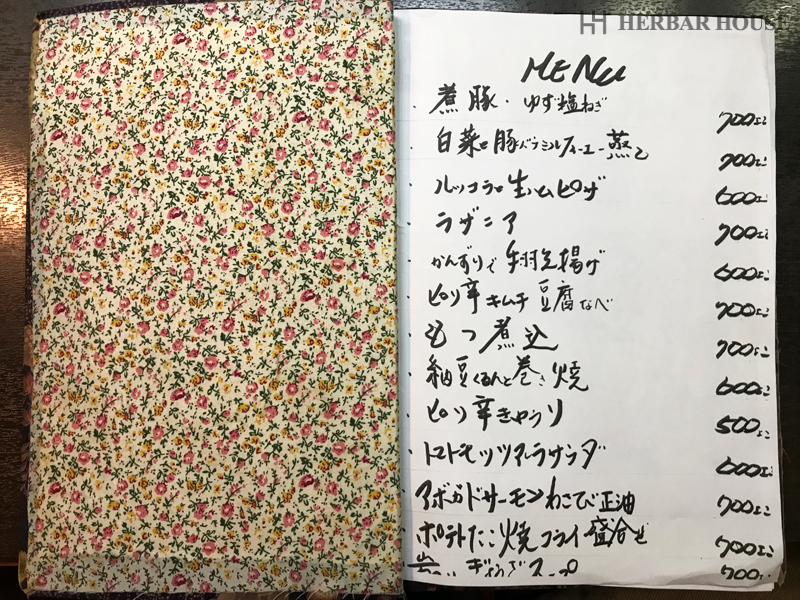 HERBAR HOUSE
MENU
煮豚・ゆず塩ねぎ 700
白菜と豚バラミルフィーユ蒸し 700
ルッコラと生ハムピザ 600
ラザニア 700
かんずりで手羽先揚げ 600
ピリ辛キムチ豆腐なべ 700
もつ煮込 700
納豆くるんと巻き焼 600
ピリ辛きゅうり 500
トマトモッツァレラサラダ 600
アボガドサーモンわさび正油 700
ポテトたこ焼フライ盛合せ 700
ぎょうざスープ 700